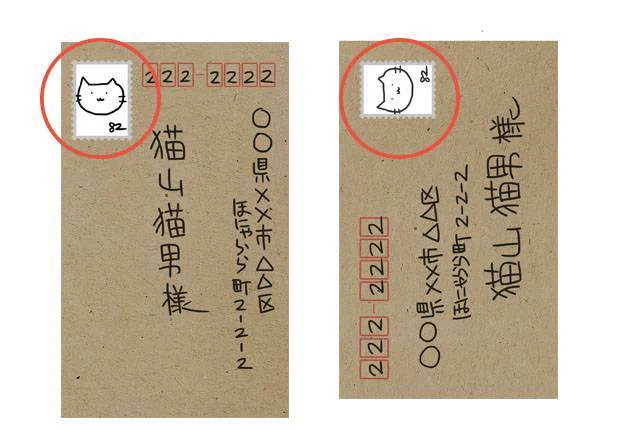 82
222-2222
〇〇県××市△△区
ほにゃらら町2-2-2
猫山猫男様
82
猫山猫男様
ほにゃらら町2-2-2
〇〇県××市△△区
222-2222